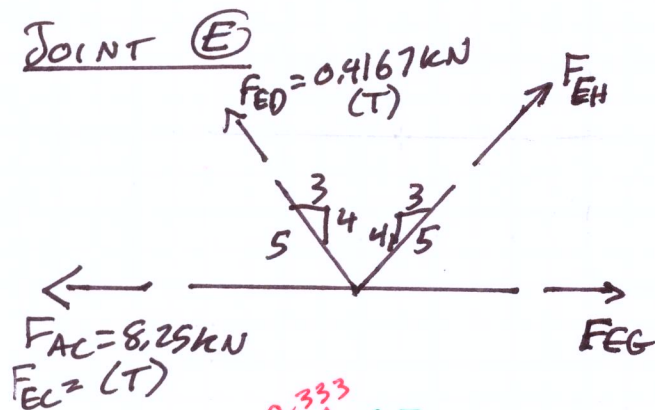 JOINT E
F_ED = 0.4167 KN
(T)
F_EH
3 3
4 4
5 5
F_AC = 8.25 KN
F_EC = (T)
F_EG
.333